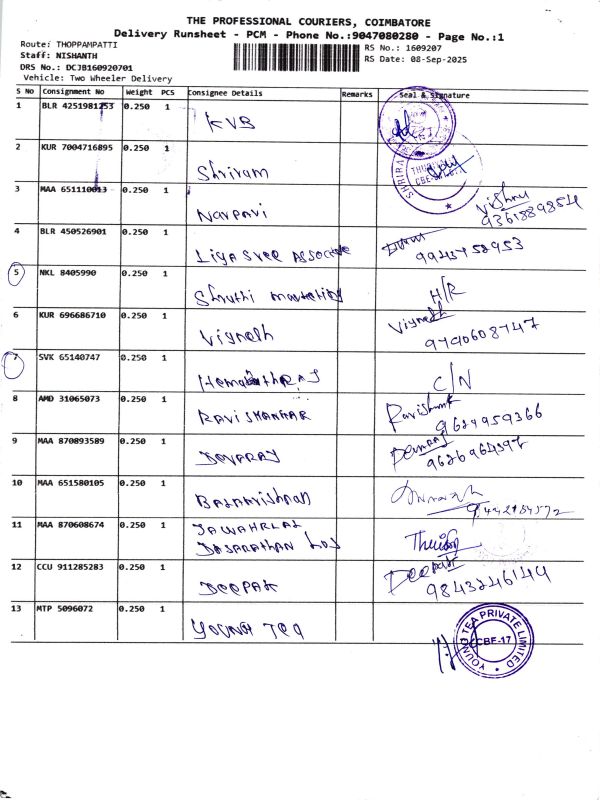 THE PROFESSIONAL COURIERS, COIMBATORE
Delivery Runsheet - PCM - Phone No.:9047080280 - Page No.:1
Route: THOPPAMPATTI
RS No.: 1609207
Staff: NISHANTH
RS Date: 08-Sep-2025
DRS No.: DCJB160920701
Vehicle: Two Wheeler Delivery
S No Consignment No Weight PCS Consignee Details Remarks Seal & Signature
1 BLR 4251981253 0.250 1 KVB
2 KUR 7004716895 0.250 1 Shriram
3 MAA 651110013 0.250 1 Navpavi Vishnu
9361889854
4 BLR 450526901 0.250 1 Liya Sree Associate
9943758953
5 NKL 8405990 0.250 1 Shruthi marketing H/R
6 KUR 696686710 0.250 1 Vignesh Vignesh
9790608747
7 SVK 65140747 0.250 1 C/N
8 AMD 31065073 0.250 1 RAVISHANKAR Ravishank
9629959366
9 MAA 870893589 0.250 1 DEVARAJ Devaraj
9626964397
10 MAA 651580105 0.250 1 Balakrishnan
11 MAA 870608674 0.250 1 JAWAHRLAL
DASARATHAN
12 CCU 911285283 0.250 1 DEEPAK Deepak
9843246144
13 MTP 5096072 0.250 1 YOUNG TEA
YOUNG TEA PRIVATE LIMITED
CBE-17